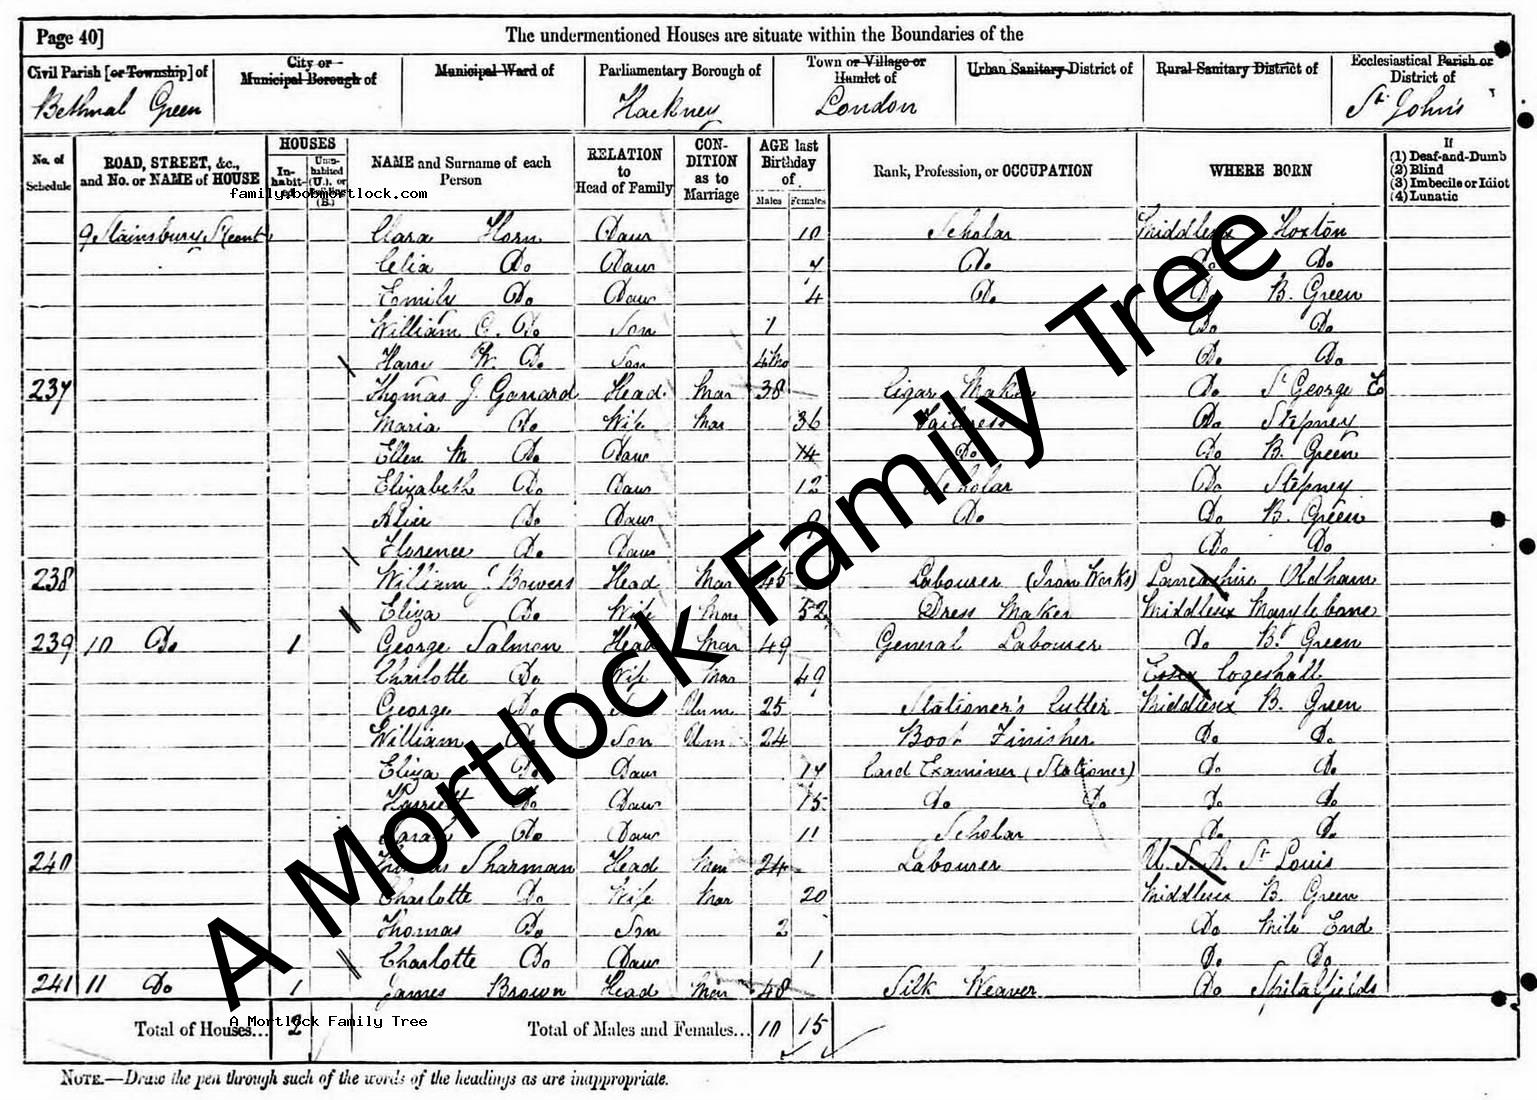 Page 40]
The undermentioned Houses are situate within the Boundaries of the
Civil Parish [or Township] of
City or Municipal Borough of
Municipal Ward of
Parliamentary Borough of
Town or Village or Hamlet of
Urban Sanitary District of
Rural Sanitary District of
Ecclesiastical Parish or District of
Bethnal Green Hackney London St. John's
No. of Schedule
ROAD, STREET, &c., and No. or NAME of HOUSE
HOUSES
In-habit-ed
Unin-habited (U.), or (B.)
NAME and Surname of each Person
RELATION to Head of Family
CON-DITION as to Marriage
AGE last Birthday of
Males Females
Rank, Profession, or OCCUPATION
WHERE BORN
If
(1) Deaf-and-Dumb
(2) Blind
(3) Imbecile or Idiot
(4) Lunatic
family.bobmortlock.com
9 Stainsbury St (cont Clara Horn Daur 10 Scholar Middlesex Hoxton
Celia Do Daur 7 Do Do Do
Emily Do Daur 4 Do Do B. Green
William C. Do Son 1 Do Do
Harry W. Do Son 4 Mo Do Do
237 Thomas J Garrard Head Mar 38 Cigar Maker Do St George E
Maria Do Wife Mar 36 Tailoress Do Stepney
Ellen M Do Daur 14 Do Do B. Green
Elizabeth Do Daur 12 Scholar Do Stepney
Alice Do Daur 9 Do Do B. Green
Florence Do Daur Do Do
238 William J Bowers Head Mar 45 Labourer (Iron Works) Lancashire Oldham
Eliza Do Wife Mar 52 Dress Maker Middlesex Marylebone
239 10 Do 1 George Salmon Head Mar 49 General Labourer Do B. Green
Charlotte Do Wife Mar 49 Essex Cogeshall
George Do Son Unm 25 Stationer's Cutter Middlesex B. Green
William Do Son Unm 24 Boot Finisher Do Do
Eliza Do Daur 17 Card Examiner (Stationer) Do Do
Harriett Do Daur 15 Do Do Do Do
Sarah Do Daur 11 Scholar Do Do
240 Thomas Sharman Head Mar 24 Labourer U.S.A. St Louis
Charlotte Do Wife Mar 20 Middlesex B. Green
Thomas Do Son 2 Do Mile End
Charlotte Do Daur 1 Do Do
241 11 Do 1 James Brown Head Mar 48 Silk Weaver Do Spitalfields
Total of Houses... 2 Total of Males and Females... 10 15
A Mortlock Family Tree
A Mortlock Family Tree
NOTE.—Draw the pen through such of the words of the headings as are inappropriate.